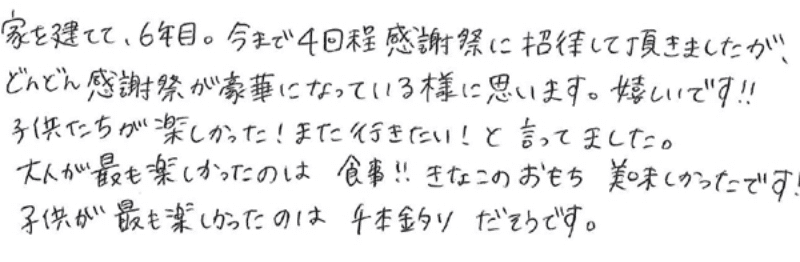 家を建てて、6年目。今まで4回程感謝祭に招待して頂きましたが、
どんどん感謝祭が豪華になっている様に思います。嬉しいです!!
子供たちが楽しかった!また行きたい!と言ってました。
大人が最も楽しかったのは 食事!! きなこのおもち 美味しかったです!
子供が最も楽しかったのは 千本釣り だそうです。